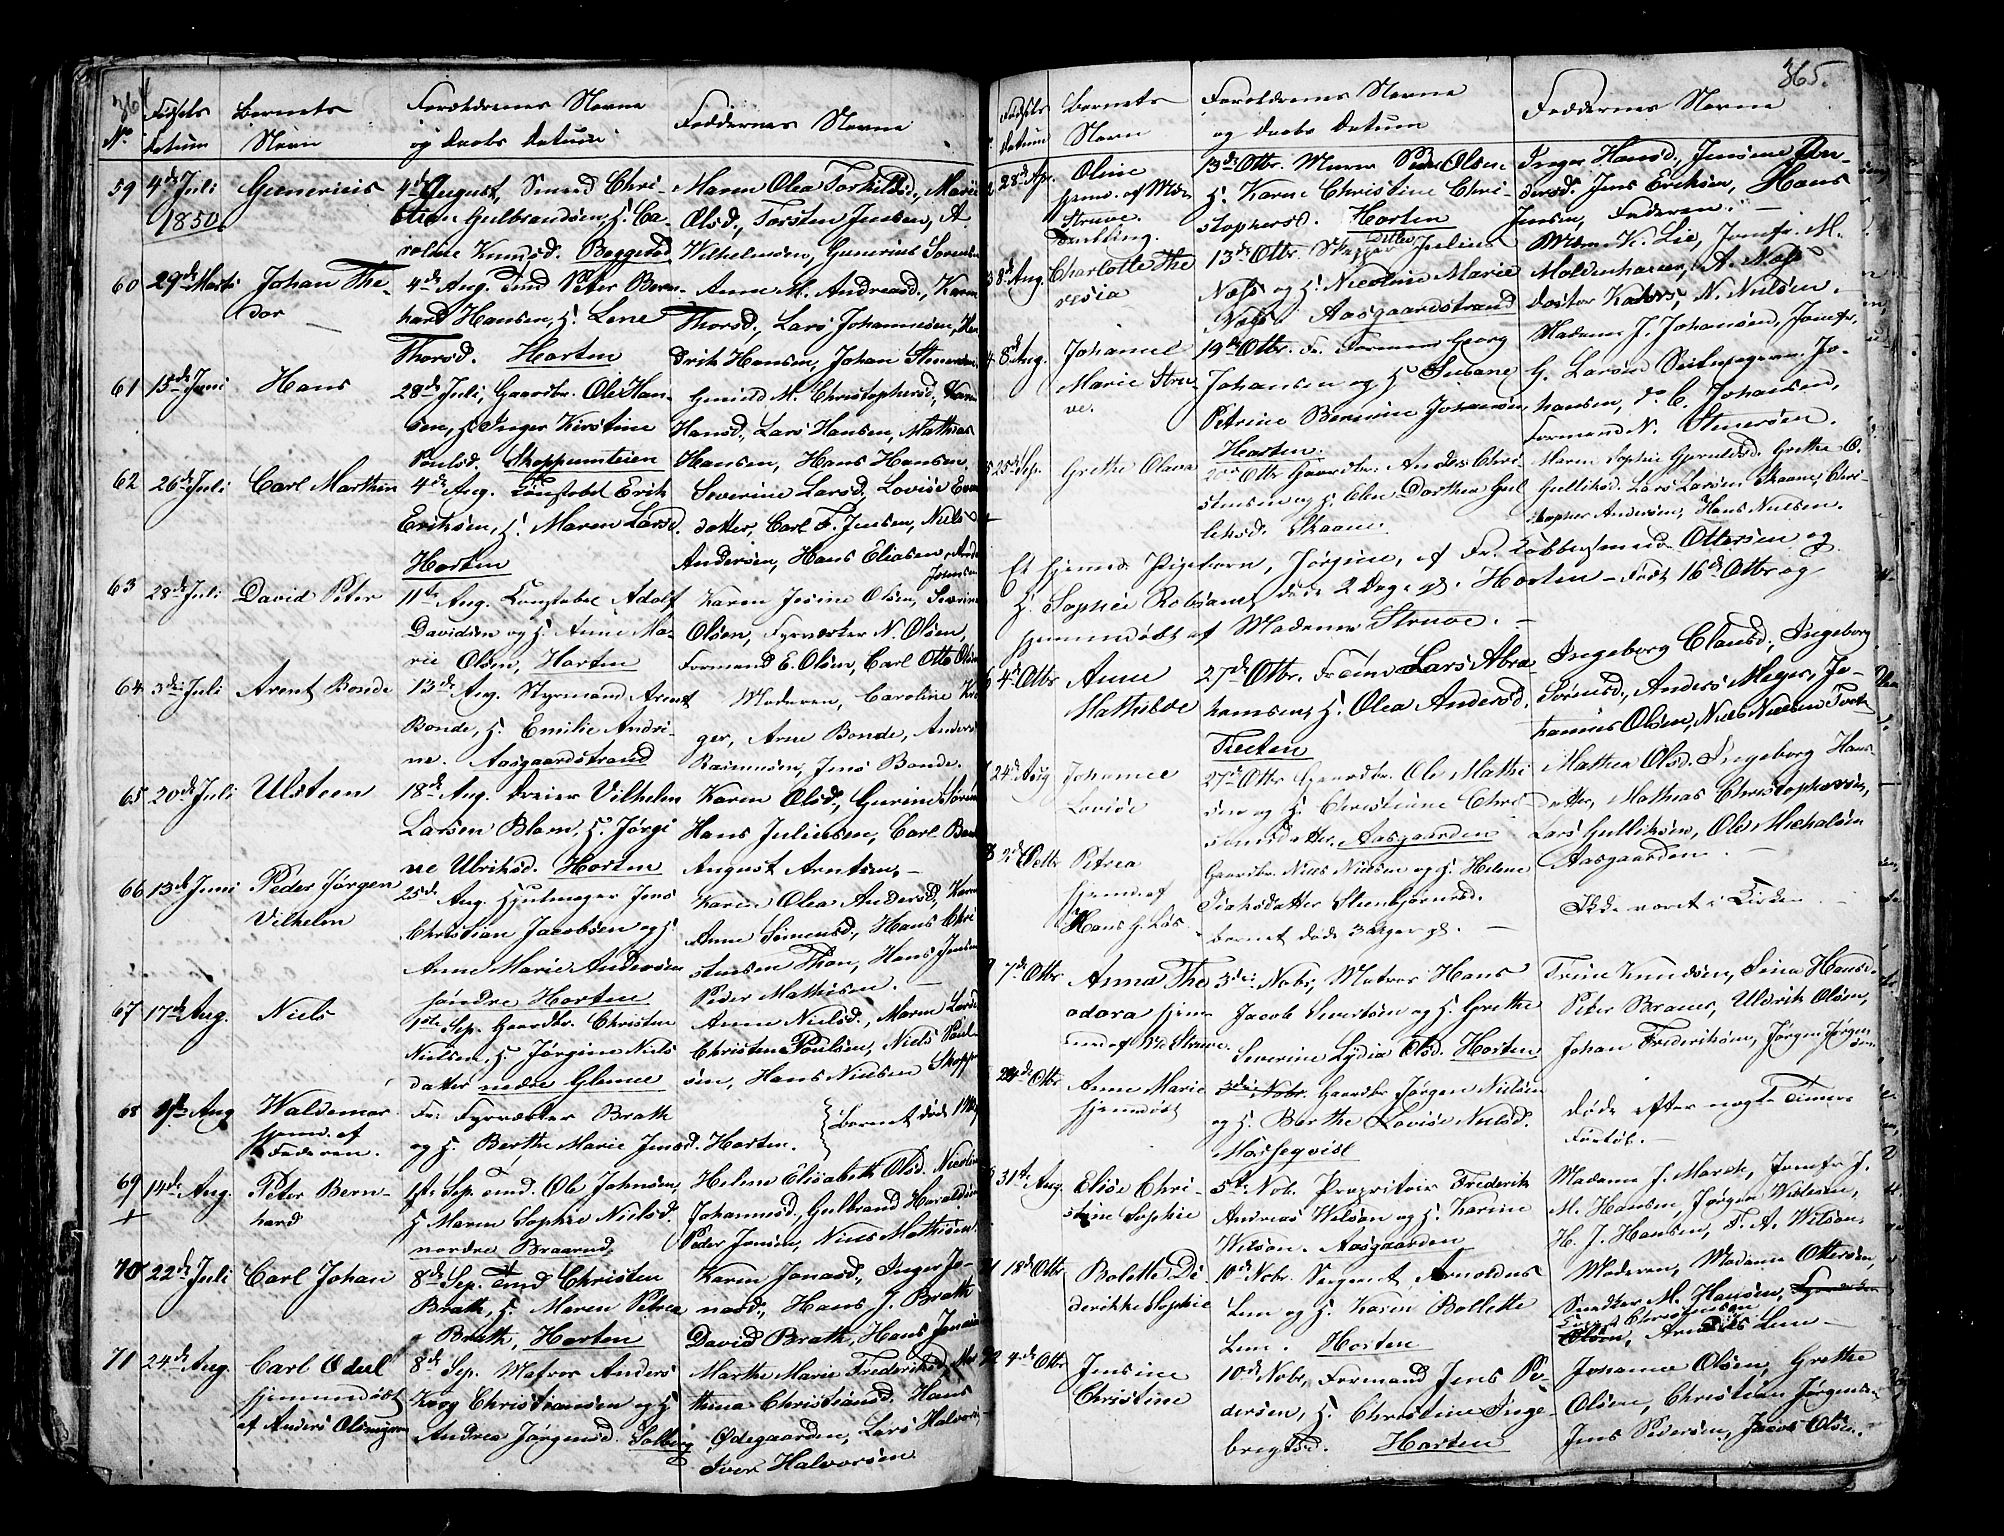 364
No
Fødsels
datum
Barnets
Navn
Forældrenes Navne
og Daabs Datum
Faddernes Navne
59 4de Juli
1850
Gunerius
4de August, Smed Chri-
stian Gulbrandsen, H. Ca-
roline Knudsd. Baggerød
Maren Olea Torkildsd., Marie
Olsd., Torsten Jensen, A
Wilhelmsen, Gunerius Sørens
60 29de Marts
Johan The-
dor
4de Aug. Tmd Peter Bern-
hard Hansen, H. Lene
Thorsd. Horten
Anne M. Andreasd., Karen
Thorsd., Lars Johannesen, Hen
drik Hansen, Johan
61 15de Juni
Hans
28de Juli, Gaardbr. Ole Han-
sen, H. Inger Kirstine
Poulsd. Skoppumteien
M. Christophersd., Karen
Hansd., Lars Hansen, Mathias
Hansen, Hans Hansen,
62 26de Juli
Carl Marthin
4de Aug. Constabel Erik
Eriksen, H. Maren Larsd.
Horten
Severine Larsd, Lovise
datter, Carl F. Jensen, Niels
Andersen, Hans Eliasen,
63 28de Juli
David Peter
11te Aug. Constabel Adolf
Davidsen og H. Anne Ma-
rie Olsen, Horten
Karen Josine Olsen, Severine
Olsen, Fyrværker N. Olsen,
Formand E. Olsen, Carl Otto Olsen
64 3die Juli
Arent Bonde
13de Aug. Styrmand Arent
Bonde, H. Emilie Andri-
ne. Aasgaardstrand
Moderen, Caroline
ger, Arne Bonde, Anders
Rasmussen, Jens Bonde.
65 20de Juli
Ulsteen
18de Aug. Dreier Vilhelm
Larsen Blom, H. Jørgi
ne Ulriksd. Horten
Karen Olsd, Gurine
Hans Juliussen, Carl
August Arntsen, -
66 13de Juni
Peder Jørgen
Vilhelm
25de Aug. Hjulmager Jens
Christian Jacobsen og H
Anne Marie Andersen
søndre Horten
Karen Olea Andersd, Karen
Anne Simensd., Hans Chri
stensen Thon, Hans Jensen
Peder Mathisen. -
67 17de Aug.
Niels
1ste Sep. Gaardbr. Christen
Nielsen, H. Jørgine Niels
datter nedre Glenne
Anne Nielsd., Maren Larsd
Christen Poulsen, Niels Poul
sen, Hans Nielsen Skopp
68 9de Aug
Waldemar
hjemd. af
Faderen.
Fr. Fyrværker Brath
og H. Berthe Marie Jensd. Horten.
barnet døde
69 14de Aug.
Peter Bern-
hard
1ste Sep. Tmd. Ole Johnsen,
H Maren Sophie Nielsd.
nordre Braarud,
Helene Elisabeth Olsd. Nicoline
Johannesd., Gulbrand Haraldsen
Peder Jensen, Niels Mathisen
70 22de Juli
Carl Johan
8de Sep. Tmd Christen
Brath, H. Maren Petrea
Brath, Horten
Karen Jonasd., Inger Jo-
nasd., Hans J. Brath
David Brath, Hans
71 24de Aug.
Carl Odul
hjemmedøbt
af Anders Olsen
8de Sep. Matros Anders
Krog Christiansen og H
Andrea Jørgensd. Solberg
Marthe Marie Frederiksd,
thina Christiansd. Hans
Ødegaarden, Lars Halvorsen
Iver Halvorsen
365.
Fødsels
datum
Barnets
Navn
Forældrenes Navne
og Daabs Datum
Faddernes Navne
28de Ap.
Oline
hjemd. af M.
Struve.
13de Otbr. Murer Peder Olsen
H. Karen Christine Chri-
stophersd. Horten
Inger Hansd., Jensine An-
dersd. Jens Eriksen, Hans
Jensen, Faderen. -
8de Aug.
Charlotte The
resia
13de Otbr. Skipper Ditlev Julius
Næss og H. Nicoline Marie
Næss. Aasgaardstrand
K. Lie, Jomfr. M.
Moldenhauer, A. Næss
Doctor N. Nielsen. -
8de Aug.
Johanne
Marie Stru-
ve.
19de Otbr. Fr. Georg
Johansen og H Susane
Petrine Berentine Johansen,
Horten
Madame J. Johansen, Jomfr.
G. Larsen Jo-
hansen, do C. Johansen,
Formand N. Simersen.
25de Sep.
Grethe Olava
Otbr Gaardbr. Anders Chri-
stensen og H. Elen Dorthea Gul
leksd. Skaane.
Maren Sophie Grethe O.
Gulliksd. Lars Larsen Skaane, Chri-
stopher Andersen, Hans Nielsen.
Et hjemd. Pigebarn, Jørgine, af Fr. Kobbersmed Ottersen og
H. Sophie Robsam, døde 2 Dage gl. Horten - født 16de Otbr og
hjemmedøbt af Madame Struve. -
4de Otbr
Anne
Mathilde
27de Otbr. Lars Abra
hamsen, H. Olea Andersd.
Tveten
Ingeborg Clausd., Ingeborg
Sørensd., Anders Meyer, Jo-
hannes Olsen, Niels Nielsen
24de Aug
Johanne
Lovise
27de Otbr Gaardbr. Ole Mathi
sen og H. Christine Chri-
stensdatter. Aasgaarden
Mathea Olsd. Ingeborg Hans-
datter, Mathias Christophersen,
Lars Gulliksen, Ole Michalsen
Aasgaarden. -
8 2de Octbr
Petrea
hjemd. af
Hans G. Løs
Gaardbr. Niels Nielsen og H. Helene
Isaksdatter Steenbjørnsrd.
barnet døde 3 uger gl. -
Ikke været i Kirken
7de Otbr
Anna The
odora hjem-
med af M. Struve.
3die Nobr, Matros Hans
Jacob Sivertsen og H. Grethe
Severine Lydia Olsd. Horten
Trine Knudsen, Sina Hansd.
Peter Braues, Uldrik Olsen,
Johan Frederiksen, Jørgen Jørgen
sen.
24de Otbr
Anne Marie
hjemdøbt
3die Nobr. Gaardbr Jørgen Nielsen
og H. Berthe Lovise Nielsd.
døde efter nogle Timers
Forløb. -
31te Aug.
Elise Chri-
stine Sophie
5te Nob. Proprietair Frederik
Andreas Wilson og H. Karine
Wilson. Aasgaarden
Madame J. Marck, Jomfr. J.
M. Hansen, Jørgen Nielsen,
H. J. Hansen, F. A. Wilson.
18de Otbr
Bolette Di
derikke Sophie
10de Nobr. Sergeant Arnoldus
Lem og H. Karen Bollette
Lem. Horten
Moderen, Madame Ottersen,
Snedker M. Hansen,
Olsen, Arnoldus Lem -
72 4de Otbr
Jensine
Christine
10de Nobr, Formand Jens Pe-
dersen, H. Christine Inge-
bregtsd. Horten
Johanna Olsen, Grethe
Olsen, Christian Jørgensen
Jens Pedersen, Jacob Olsen.